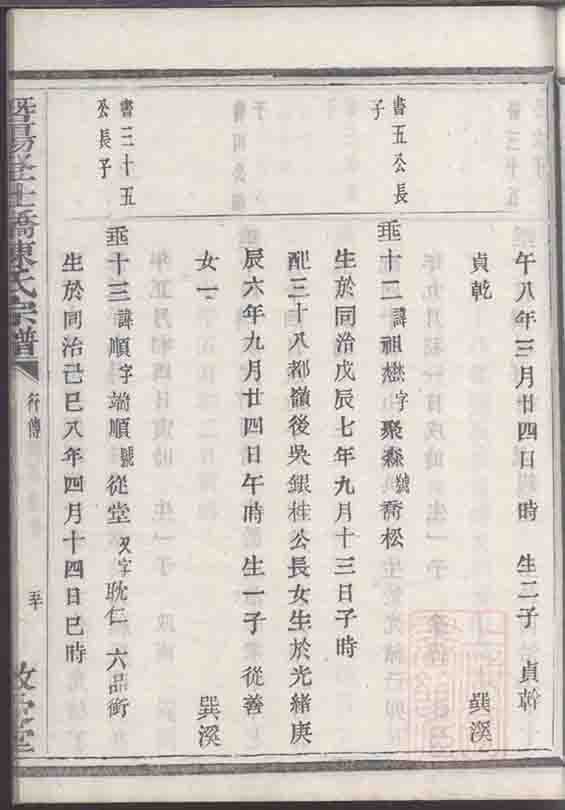 午八年三月廿四日時　生二子　貞幹
貞乾　巽溪
書五公長
子
垂十二諱祖懋字聚森號喬松
生於同治戊辰七年九月十三日子時
配三十八都嶺後吳銀桂公長女生於光緒庚
辰六年九月廿四日午時　生一子　從善
女一　巽溪
書三十五
公長子
垂十三諱順字端順號從堂又字耽仁　六品銜
生於同治己巳八年四月十四日巳時
暨陽
橋陳氏宗譜
行傳